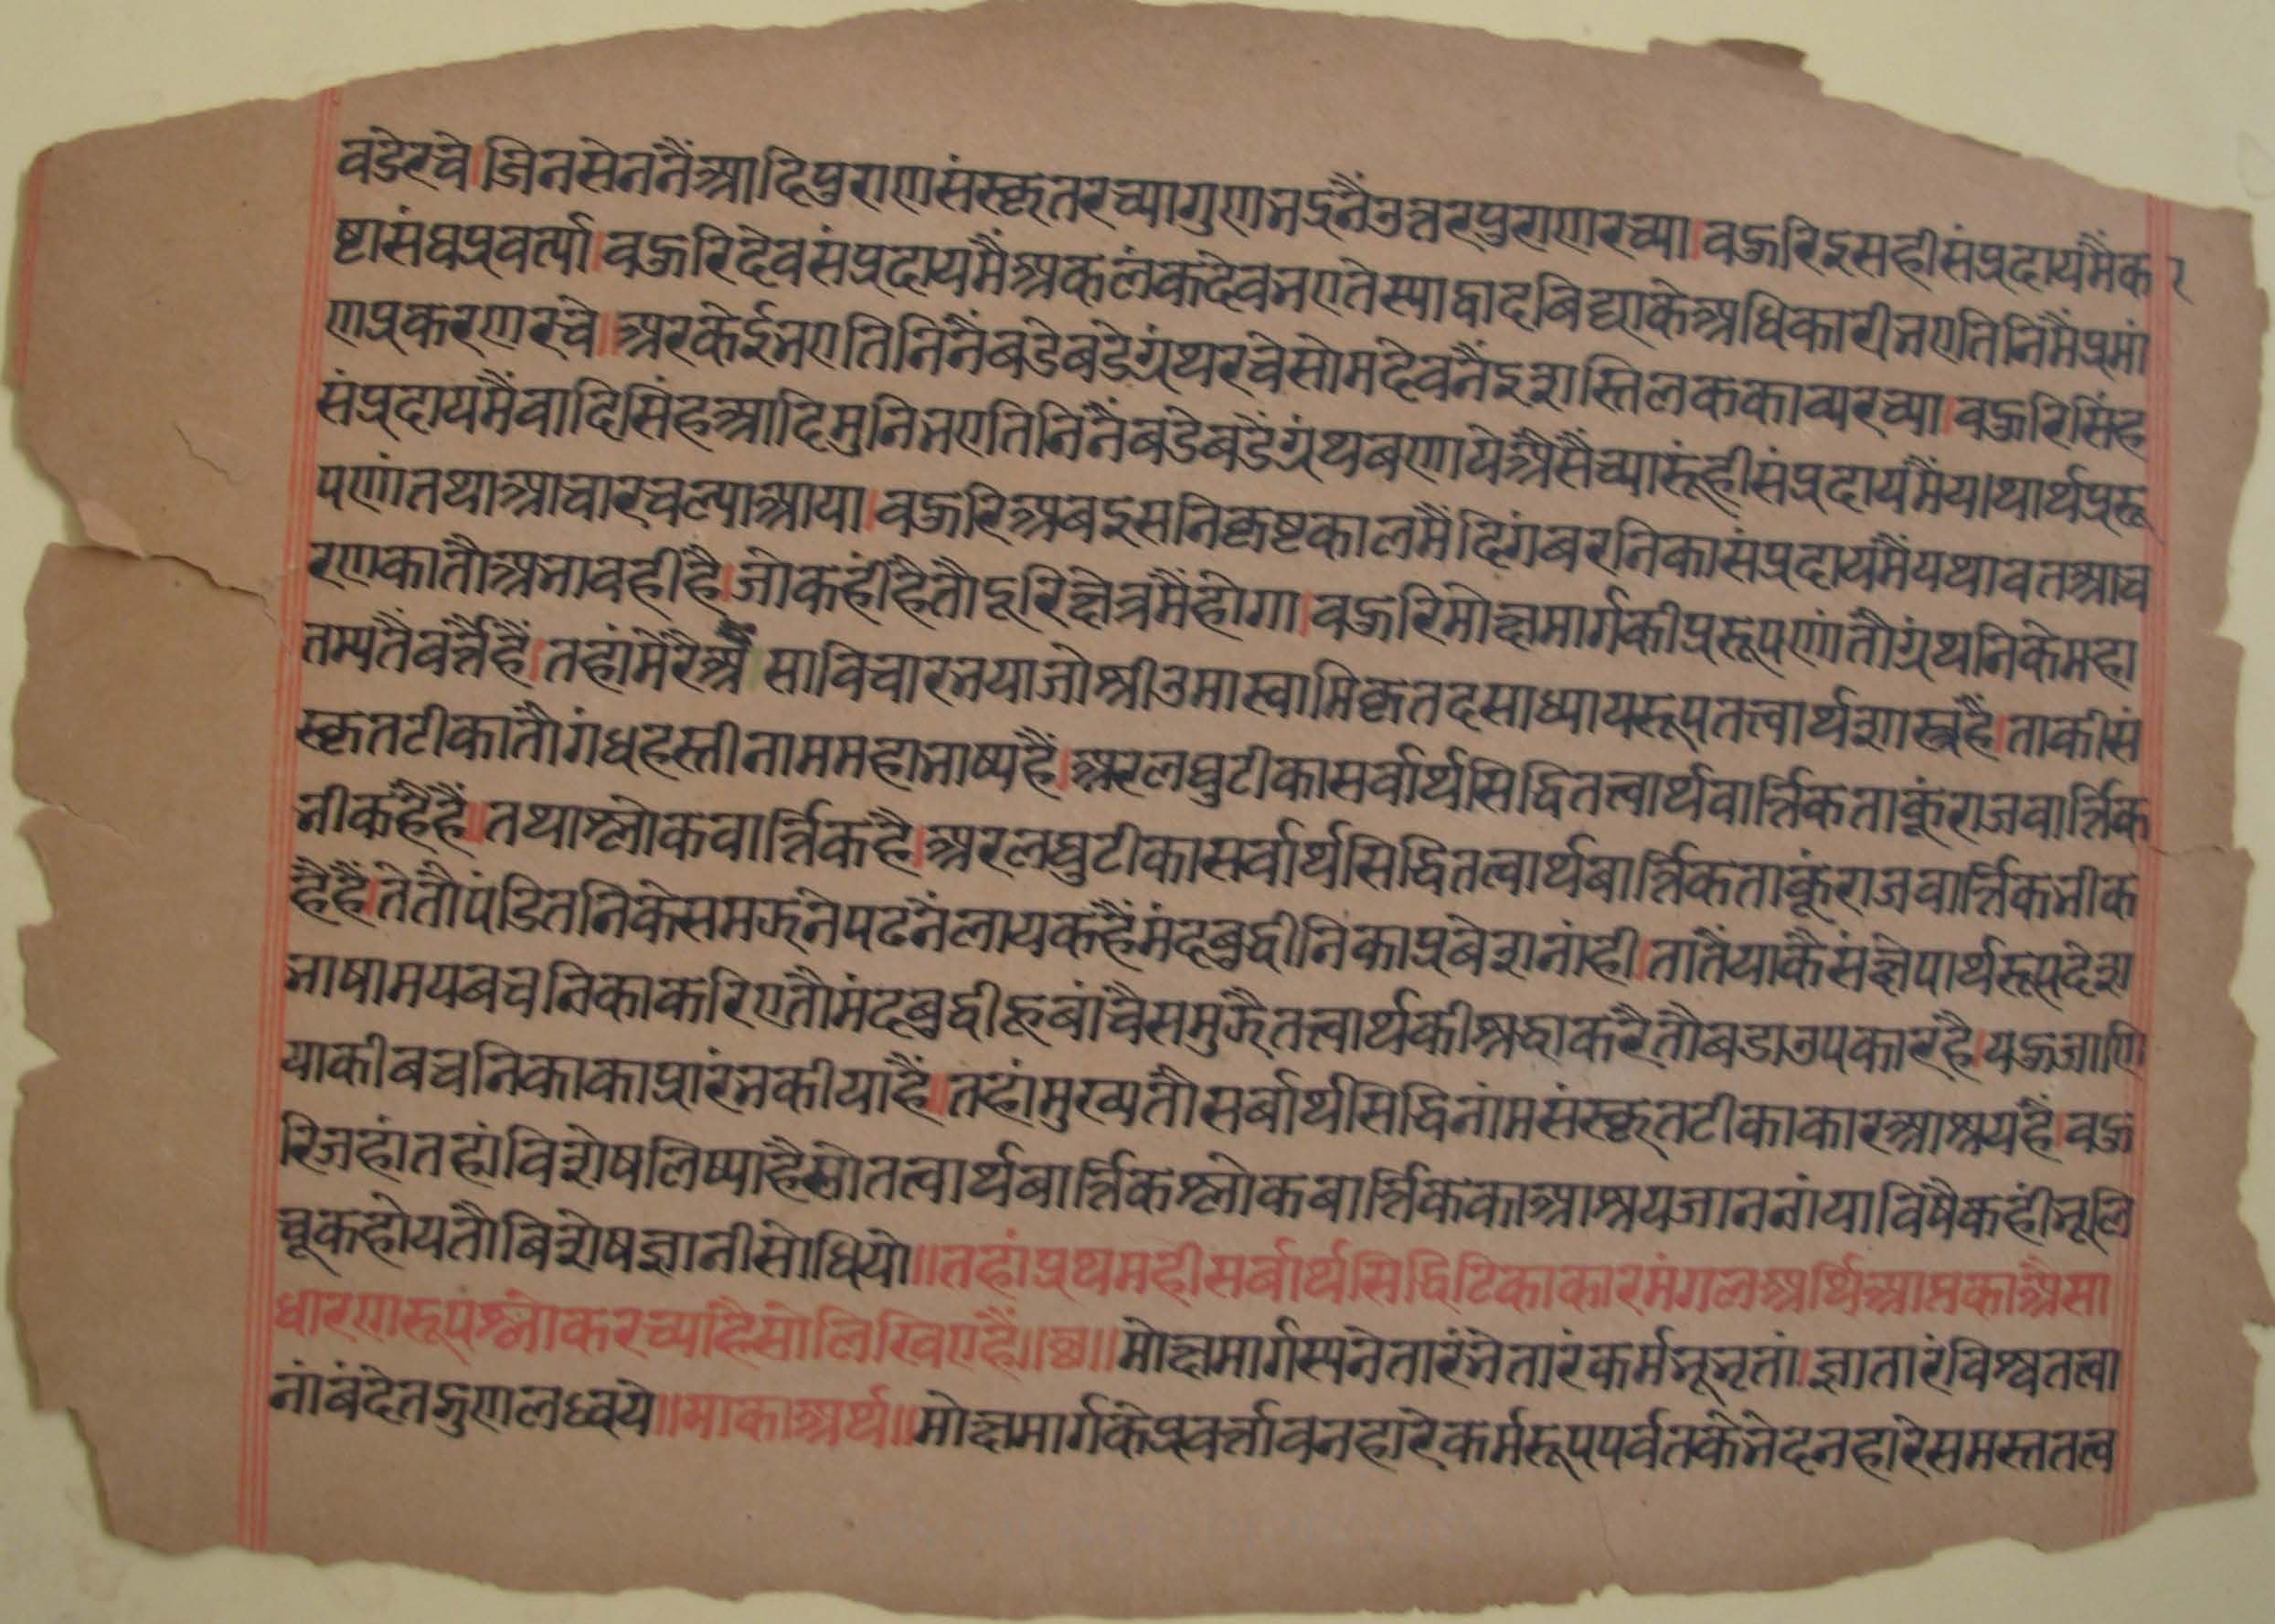 वडेरचे।जिनसेननैंआदिपुराणसंस्कृतरच्यागुणभद्रनैंउत्तरपुराणरच्या।बहुरिइसहीसंप्रदायमैंका
ष्टासंघप्रवर्त्या।बहुरिदेवसंप्रदायमैंअकलंकदेवभएतेस्याद्वादबिद्याकेअधिकारीभएतिनिमैंप्रमां
णप्रकरणरचे॥अरकेईभएतिनिनैंबडेबडेग्रंथरचेसोमदेवनैंइशस्तिलककाव्यरच्या।बहुरिसिंह
संप्रदायमैंवादिसिंहआदिमुनिभएतिनिनैंबडेबडैग्रंथबणायेअैसैंच्यारूंहीसंप्रदायमैंयाथार्थप्ररू
पणांतथाआचारचल्याआया।बहुरिअबइसनिकृष्टकालमैंदिगंबरनिकासंप्रदायमैंयथावतआच
रणकातौअभावहीहै।जोकहींहैतौदूरिक्षेत्रमैंहोगा।बहुरिमोक्षमार्गकीप्ररूपणांतौग्रंथनिकेमहा
तम्यतैंवर्त्तैहैं।तहांमेरेअै॥साविचारभयाजोश्रीउमास्वामिकृतदसाध्यायरूपतत्त्वार्थशास्त्रहै।ताकीसं
स्कृतटीकातौगंधहस्तीनाममहाभाष्यहैं।अरलघुटीकासर्वार्थसिद्धितत्त्वार्थवार्त्तिकताकूंराजवार्त्तिक
भीकहैंहैं॥तथाश्लोकवार्त्तिकहै।अरलघुटीकासर्वार्थसिद्धितत्वार्थबार्त्तिकताकूंराजवार्त्तिकभीक
हैहैं।तेतौपंडितनिकेसमझनेपढनैंलायकहैंमंदबुद्धीनिकाप्रबेशनांही।तातैंयाकैसंक्षेपार्थरूपदेश
भाषामयबचनिकाकरिएतौमंदबुद्धीहूबांचैसमुझैतत्त्वार्थकीश्रद्धाकरैतौबडाउपकारहै।यहजाणि
याकीबचनिकाकाप्रारंभकीयाहैं॥तहांमुख्यतौसर्बार्थसिद्धिनांमसंस्कृतटीकाकारआश्रयहै।बहु
रिजहांतहांविशेषलिष्याहैसोतत्वार्थबार्त्तिकश्लोकबार्त्तिककाआश्रयजाननांयाविषैकहींभूलि
चूकहोयतौबिशेषज्ञानीसोधियो॥तहांप्रथमहीसर्बार्थसिद्धिटिकाकारमंगलअर्थिआप्तकाअैसा
धारणरूपश्लोकरच्याहैसोलिखिएहैं॥छ॥मोक्षमार्गस्यनेतारंभेतारंकर्मभूभृतां।ज्ञातारंविश्वतत्वा
नांबंदेतद्गुणलब्धये॥याकाअर्थ॥मोक्षमार्गकेप्रवर्त्तावनहारेकर्मरूपपर्वतकेभेदनहारेसमस्ततत्व